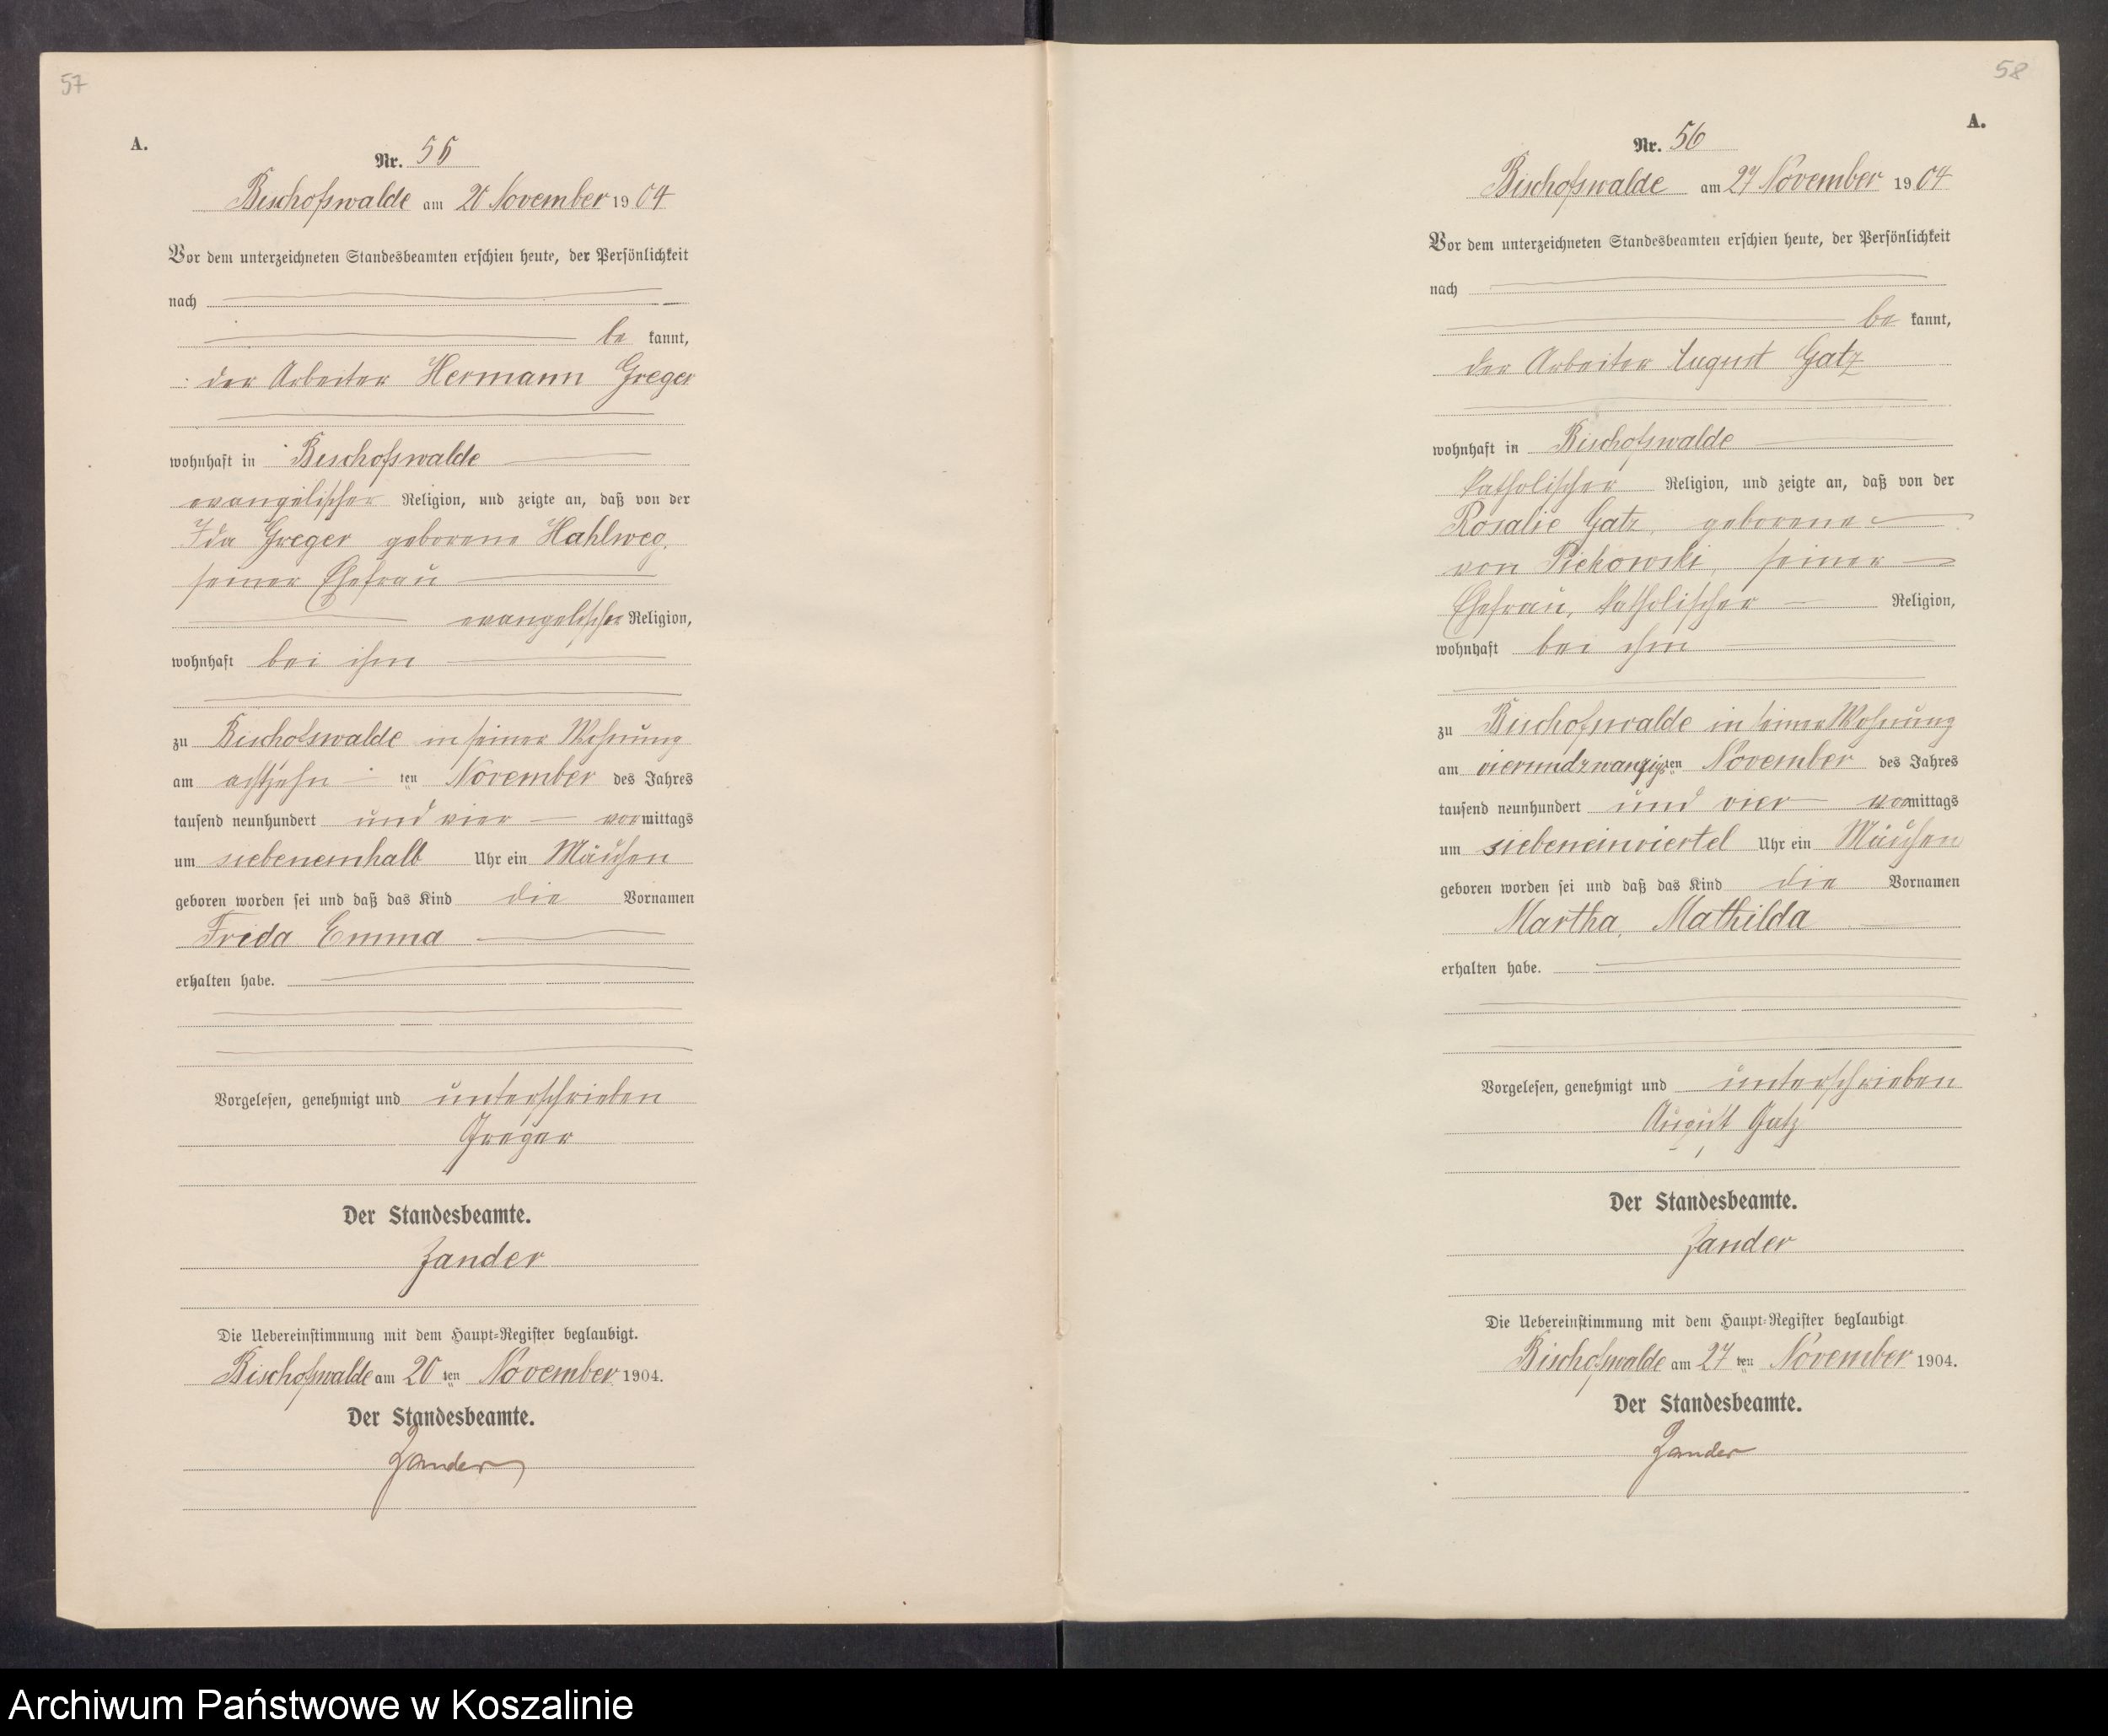 57
A.
Nr. 55
Bischofswalde am 20 November 1904
Vor dem unterzeichneten Standesbeamten erschien heute, der Persönlichkeit
nach
be kannt,
der Arbeiter Hermann Greger
wohnhaft in Bischofswalde
evangelischer Religion, und zeigte an, daß von der
Ida Greger geborene Hahlweg,
seiner Ehefrau
evangelischer Religion,
wohnhaft bei ihm
zu Bischofswalde in seiner Wohnung
am achtzehn ten November des Jahres
tausend neunhundert und vier vormittags
um siebeneinhalb Uhr ein Mädchen
geboren worden sei und daß das Kind die Vornamen
Frida Emma
erhalten habe.
Vorgelesen, genehmigt und unterschrieben
Greger
Der Standesbeamte.
Zander
Die Uebereinstimmung mit dem Haupt-Register beglaubigt.
Bischofswalde am 20 ten November 1904.
Der Standesbeamte.
Zander
58
A.
Nr. 56
Bischofswalde am 27 November 1904
Vor dem unterzeichneten Standesbeamten erschien heute, der Persönlichkeit
nach
be kannt,
der Arbeiter August Gatz
wohnhaft in Bischofswalde
katholischer Religion, und zeigte an, daß von der
Rosalie Gatz, geborene
von Piechowski, seiner
Ehefrau, katholischer Religion,
wohnhaft bei ihm
zu Bischofswalde in seiner Wohnung
am vierundzwanzigsten November des Jahres
tausend neunhundert und vier vormittags
um siebeneinviertel Uhr ein Mädchen
geboren worden sei und daß das Kind die Vornamen
Martha, Mathilda
erhalten habe.
Vorgelesen, genehmigt und unterschrieben
August Gatz
Der Standesbeamte.
Zander
Die Uebereinstimmung mit dem Haupt-Register beglaubigt
Bischofswalde am 27 ten November 1904.
Der Standesbeamte.
Zander
Archiwum Państwowe w Koszalinie